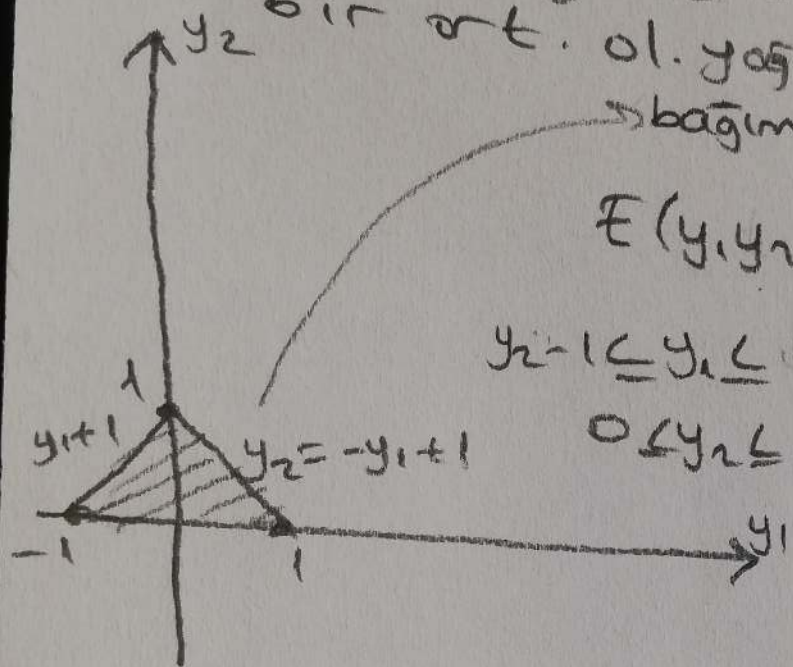 bir ort. ol. yoğ
y₂
bağım
E(y₁y₂
y₂-1≤y₁≤
0≤y₂≤
1
y₁+1
y₂=-y₁+1
-1
1
y₁